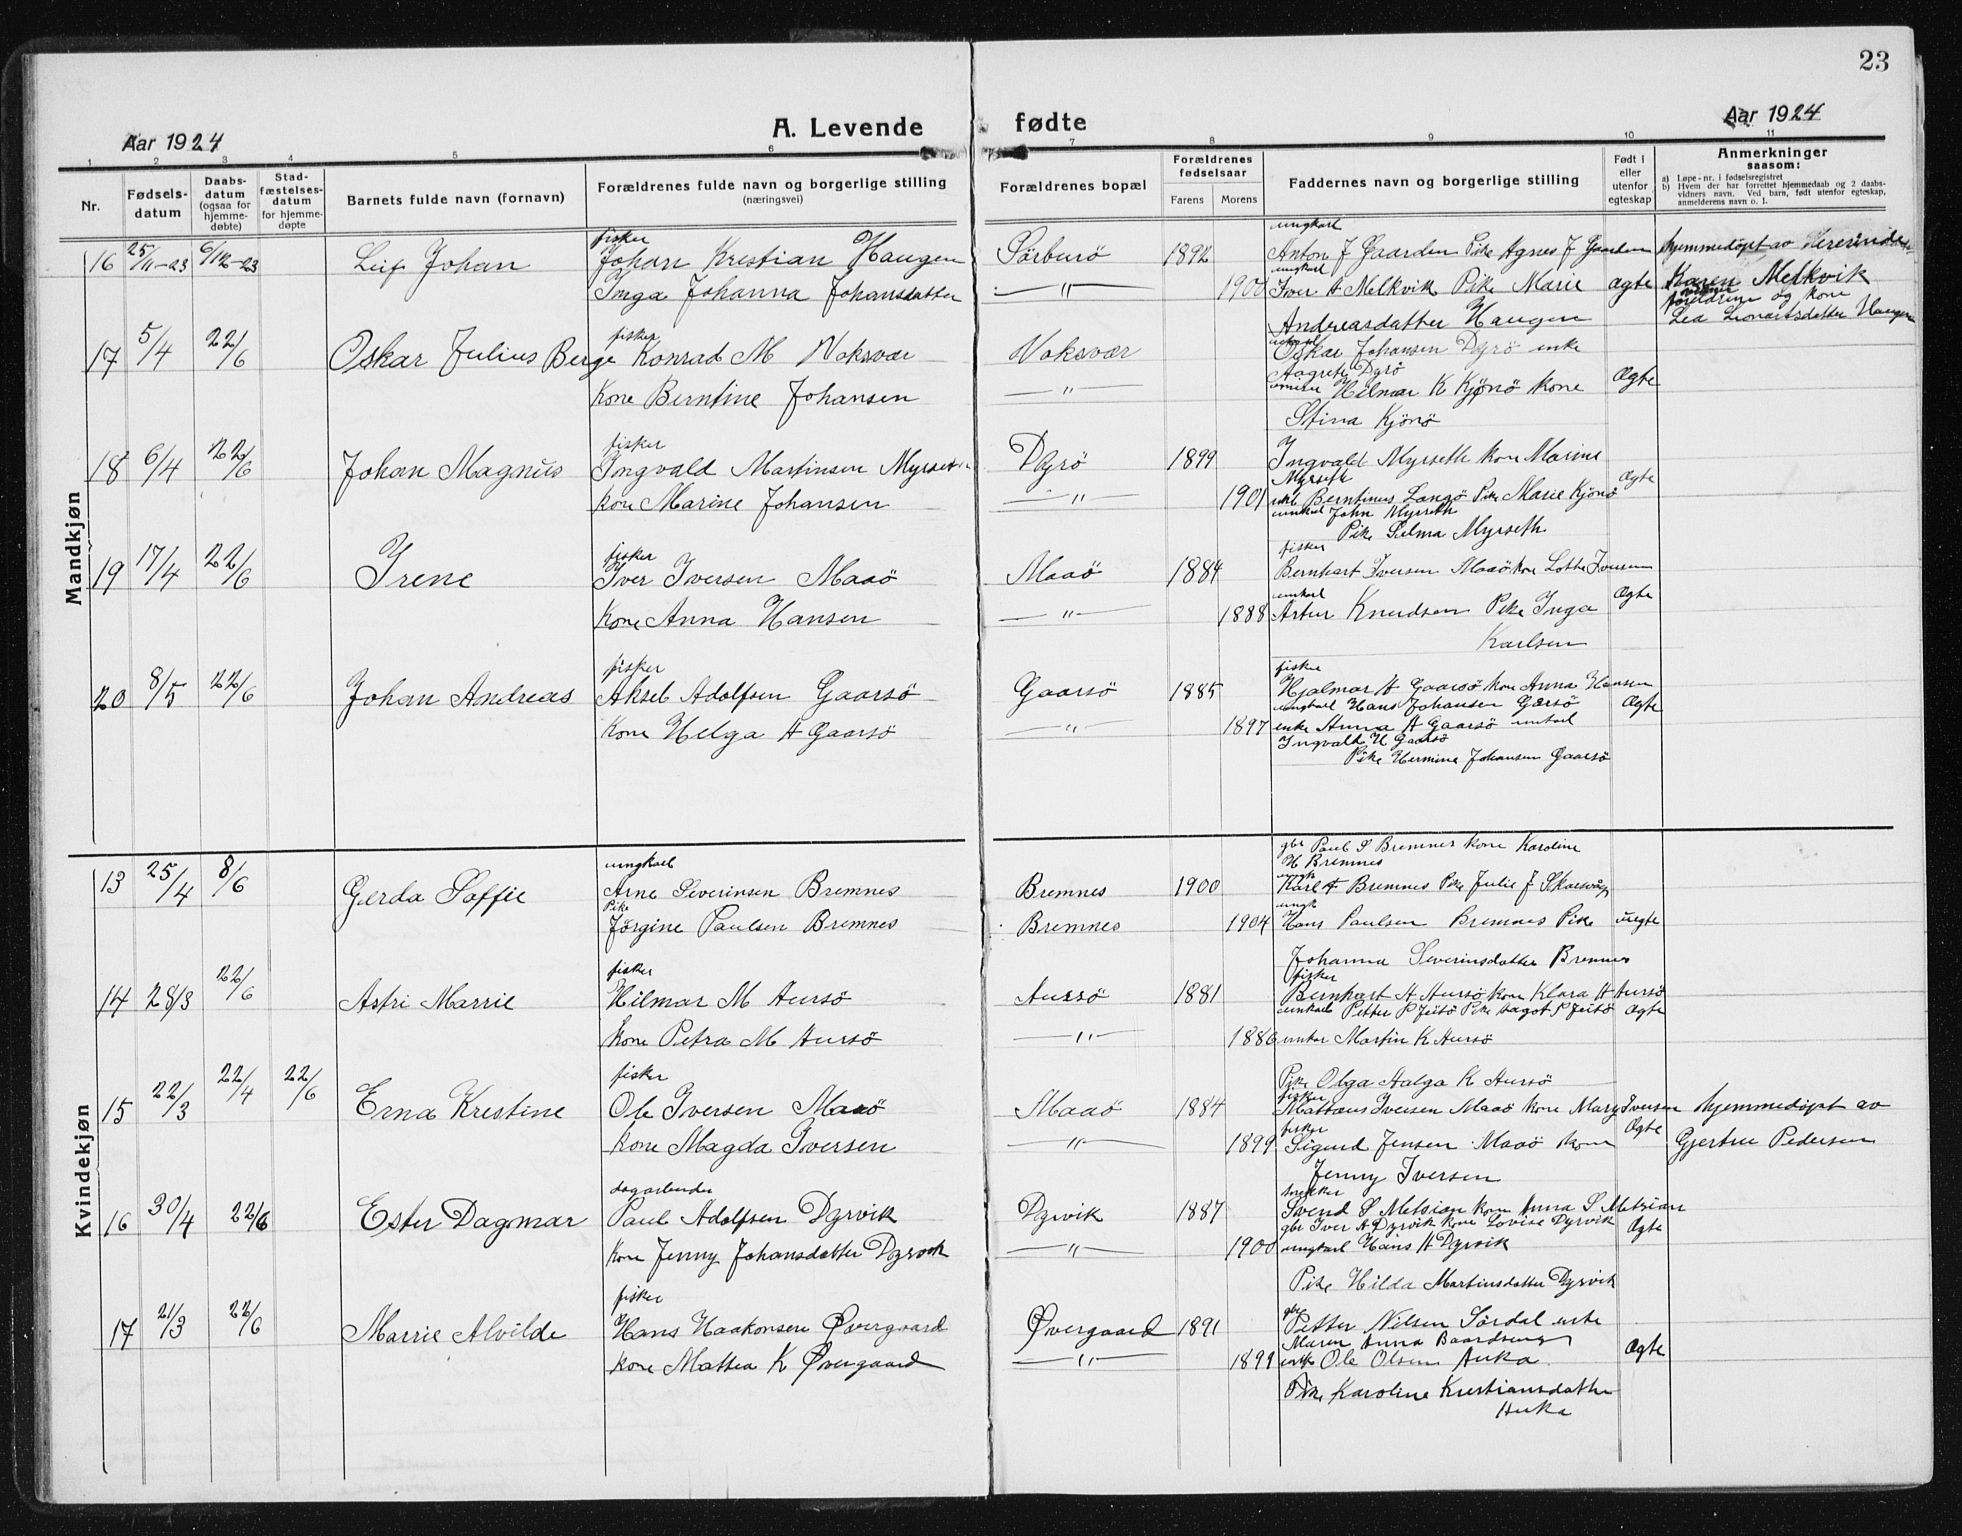 23
Aar 1924
A. Levende fødte
Aar 1924
1 2 3 4 5 6 7 8 9 10 11
Nr.
Fødsels-
datum
Daabs-
datum
(ogsaa for
hjemme-
døbte)
Stad-
fæstelses-
datum
for hjemme-
døpte
Barnets fulde navn (fornavn)
Forældrenes fulde navn og borgerlige stilling
(næringsvei)
Forældrenes bopæl
Forældrenes
fødselsaar
Farens Morens
Faddernes navn og borgerlige stilling
Født i
eller
utenfor
egteskap
Anmerkninger
saasom:
a) Løpe-nr. i fødselsregistret
b) Hvem der har forrettet hjemmedaab og 2 daabs-
vidners navn. Ved barn, født utenfor egteskap,
anmelderens navn o. l.
Mandkjøn
fisker ungkarl
16 25/11-23 6/12-23 Leif Johan Johan Krestian Haugen Sørburö 1892 Anton J Gaarden Pike Agnes J Gaarden hjemmedöpt av
ungkarl
Inga Johanna Johansdatter —"— 1900 Iver A Melkvik Pike Marie Ægte Karen Melkvik
foreldrene og kone
Andreasdatter Haugen Lea Leonartsdatter Haugen
fisker
17 5/4 22/6 Oskar Julius Berge Konrad M Voksvær Voksvær Oskar Johansen Dyrö enke
Aagrete Dyrö
Kone Berntine Johansen —"— Hilmar K Kjönö Kone Ægte
Stina Kjönö
fisker
18 6/4 22/6 Johan Magnus Ingvald Martinsen Myrseth Dyrö 1899 Ingvald Myrseth kone Marine
Myrseth Ægte
kone Marine Johansen —"— 1901 Berntinus Langö Pike Marie Kjönö
umkarl John Myrseth
Pike Selma Myrseth
fisker fisker
19 17/4 22/6 Irene Iver Iversen Maaö Maaö 1884 Bernhart Iversen Maaö kone Lotte Iversen
umkarl Ægte
Kone Anna Hansen —"— 1888 Artur Knudsen Pike Inga
Karlsen
fisker fisker
20 8/5 22/6 Johan Andreas Aksel Adolfsen Gaarsö Gaarsö 1885 Hjalmar A Gaarsö kone Anna Hansen
ungkarl Hans Johansen Gærsö Ægte
Kone Helga A Gaarsö —"— 1897 enke Anna A Gaarsö umkarl
Ingvald H Gaarsö
Pike Hermine Johansen Gaarsö
Kvindekjøn
gbr Paul S Bremnes Kone Karoline
ungkarl H Bremnes
13 25/4 8/6 Gerda Soffie Arne Severinsen Bremnes Bremnes 1900 Karl A Bremnes Pike Julie J Skarsvåg
Pike ungk
Jörgine Paulsen Bremnes Bremnes 1904 Hans Paulsen Bremnes Pike uegte
Johanna Severinsdatter Bremnes
fisker fisker
14 28/3 22/6 Astri Marrie Hilmar M Aursö Aursö 1881 Bernhart A Aursö kone Klara A Aursö
umkarl Petter P Jeitö Pike Dagot P Jeitö Ægte
kone Petra M Aursö —"— 1886 Martin K Aursö
Pike Olga Halga K Aursö
fisker fisker
15 22/3 22/4 22/6 Erna Krestine Ole Iversen Maaö Maaö 1884 Mattæus Iversen Maaö kone Mary Iversen hjemmedöpt av
fisker Ægte
kone Magda Iversen —"— 1899 Sigurd Jensen Maaö kone Gjertru Pedersen
Jenny Iversen
dagarbeider snekker
16 30/4 22/6 Ester Dagmar Paul Adolfsen Dyrvik Dyrvik 1887 Svend S Metsian kone Anna S Metsian
gbr Iver A Dyrvik kone Lovise Dyrvik Ægte
kone Jenny Johansdatter Dyrvik —"— 1900 ungkarl Hans A Dyrvik
Pike Hilda Martinsdatter Dyrvik
fisker gbr
17 21/3 22/6 Marrie Alvilde Hans Haakonsen Øvergaard Øvergaard 1891 Petter Nilsen Sördal enke
Maren Anna Baardseng
kone Mattea K Øvergaard —"— 1899 enke Ole Olsen Auka Ægte
Pike Karoline Kristiansdatter
Auka